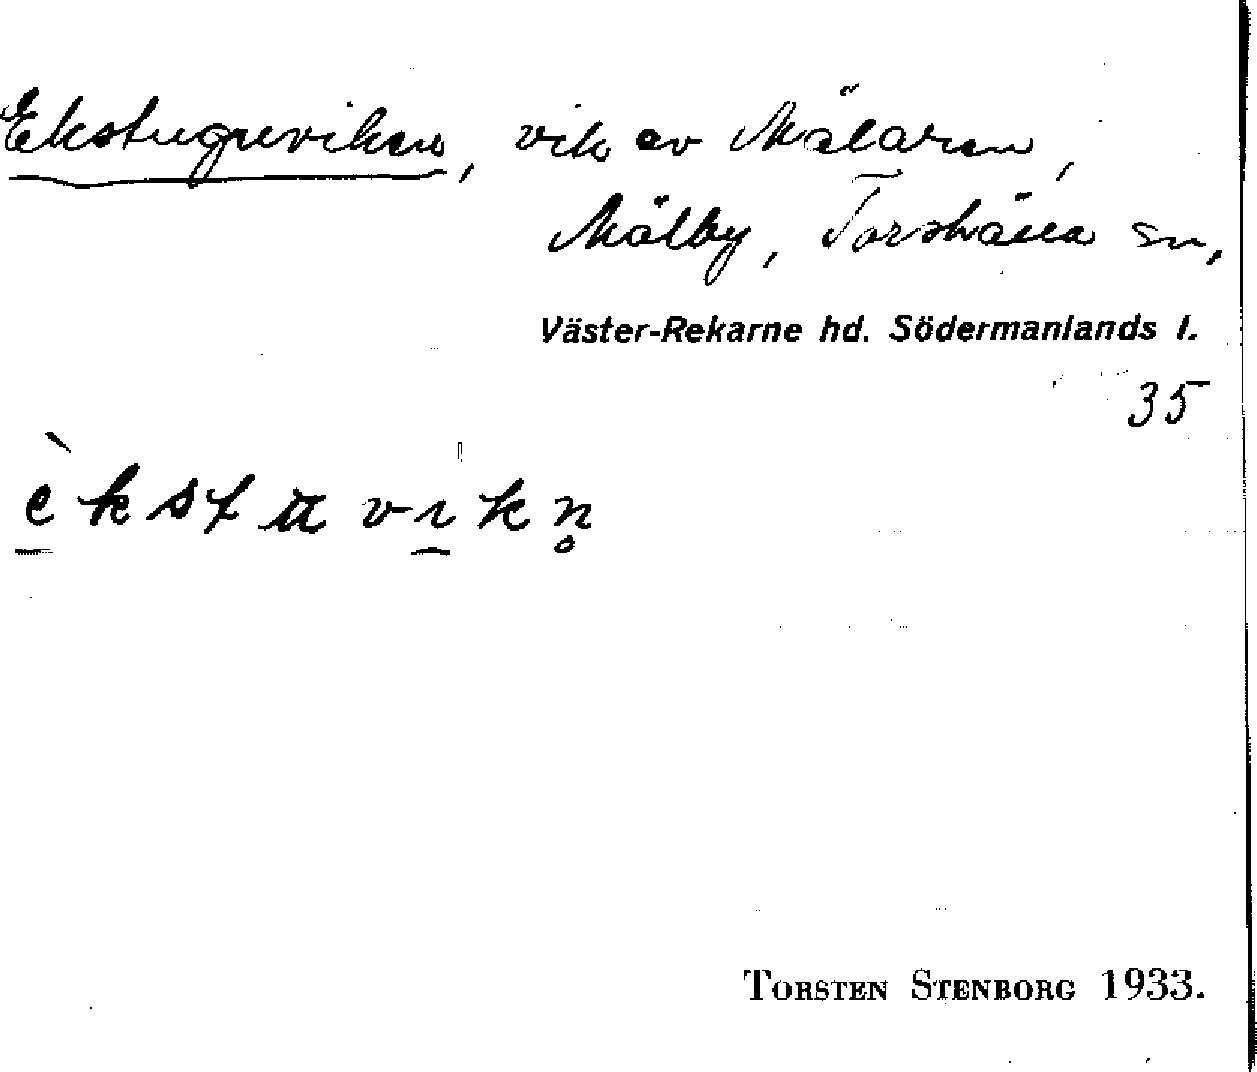 Ekstuguviken, vik av Mälaren,
Mälby, Torshälla sn,
Väster-Rekarne hd. Södermanlands l.
35
TORSTEN STENBORG 1933.